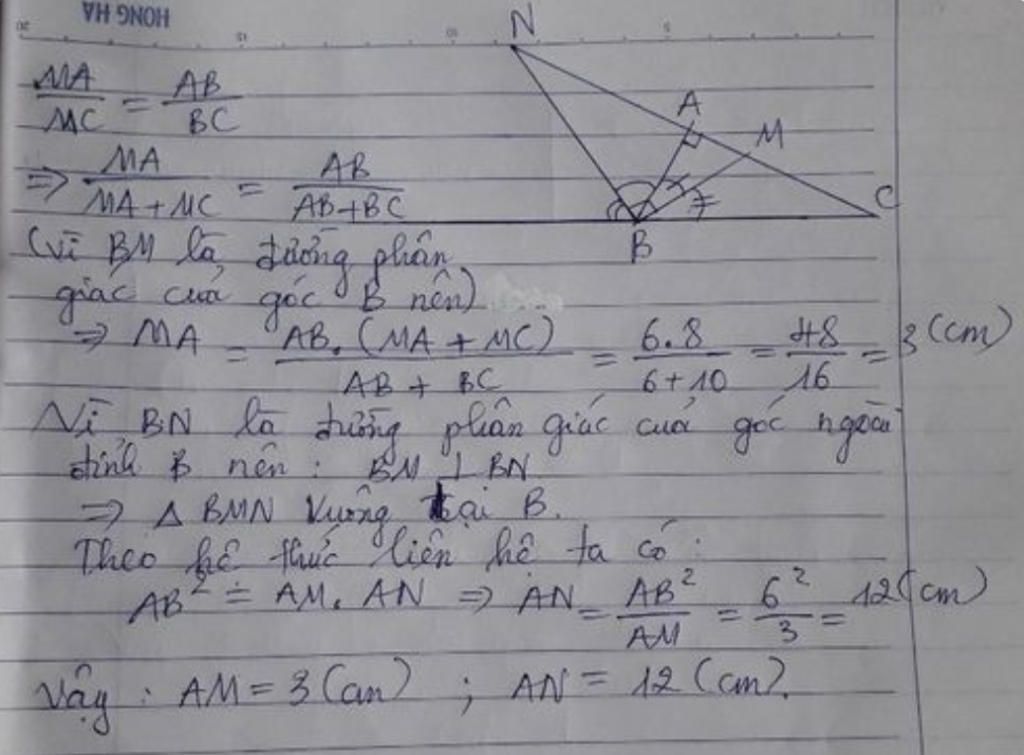 HONG HA
20 15 10 5
N
A
M
C
B
MA/MC = AB/BC
=> MA/(MA + MC) = AB/(AB+BC)
(Vì BM là đường phân
giác của góc B nên)
=> MA = AB.(MA + MC)/(AB + BC) = 6.8/(6+10) = 48/16 = 3 (cm)
Vì BN là đường phân giác của góc ngoài
đỉnh B nên : BM ⊥ BN
=> Δ BMN Vuông tại B.
Theo hệ thức liên hệ ta có :
AB² = AM. AN => AN = AB²/AM = 6²/3 = 12 (cm)
Vậy : AM = 3 (cm) ; AN = 12 (cm).